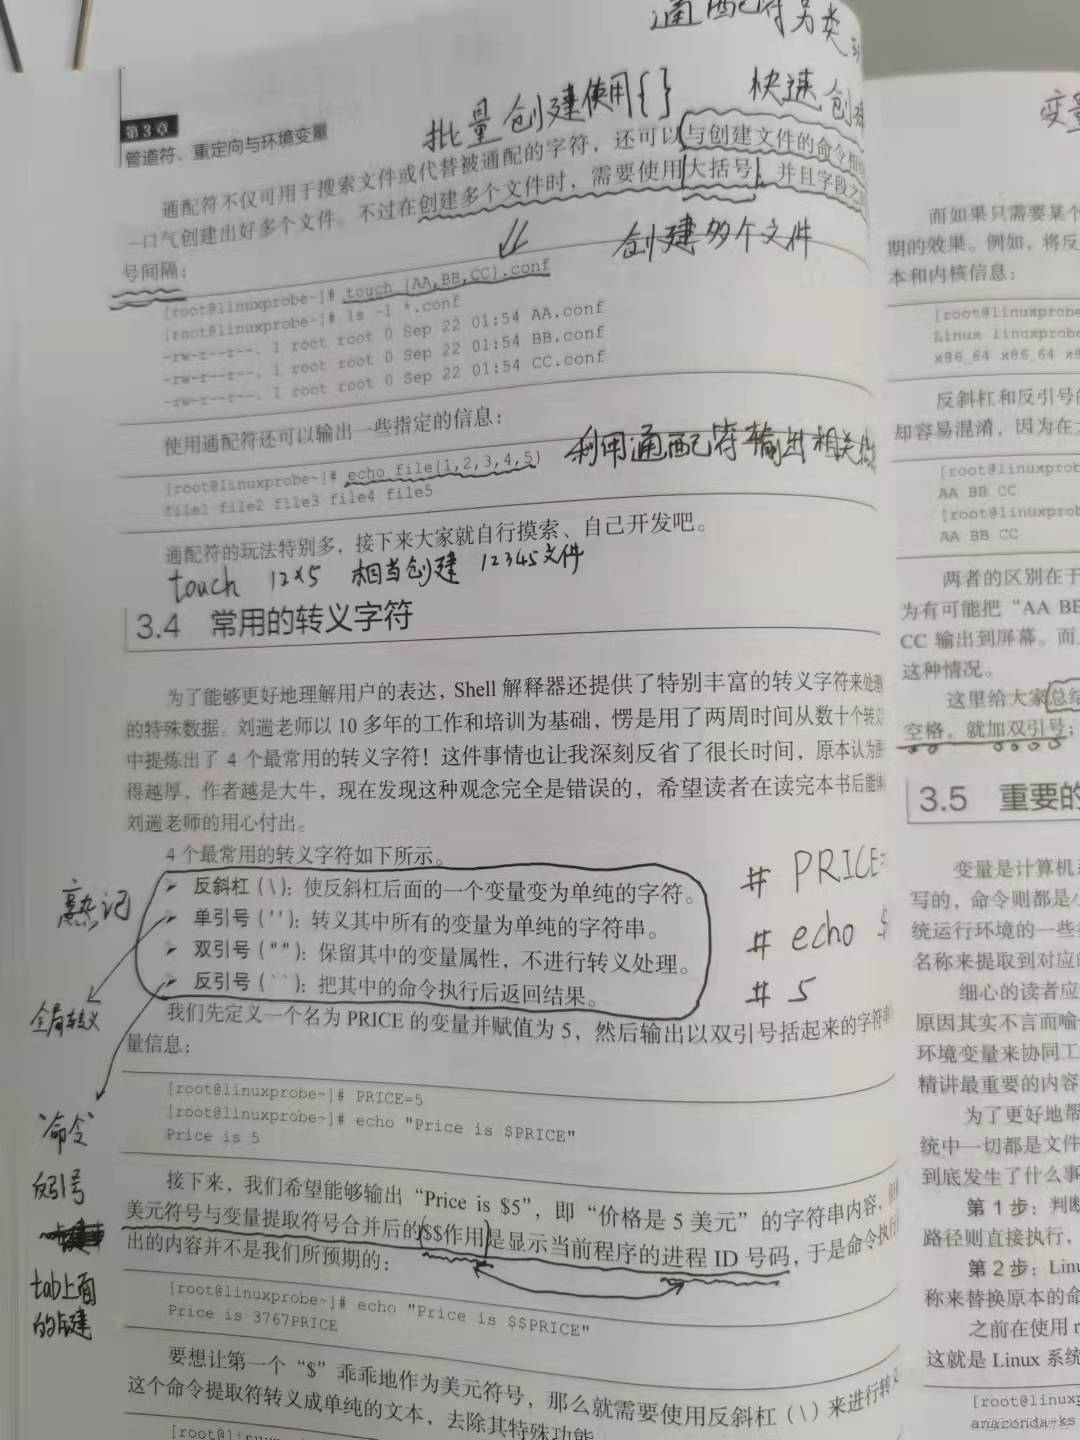 通配符另类
批量创建使用{ }
快速创建
第3章
管道符、重定向与环境变量
通配符不仅可用于搜索文件或代替被通配的字符，还可以与创建文件的命令相
一口气创建出好多个文件。不过在创建多个文件时，需要使用大括号，并且字段之
号间隔：
创建多个文件
[root@linuxprobe~]# touch {AA,BB,CC}.conf
[root@linuxprobe~]# ls -l *.conf
-rw-r--r--. 1 root root 0 Sep 22 01:54 AA.conf
-rw-r--r--. 1 root root 0 Sep 22 01:54 BB.conf
-rw-r--r--. 1 root root 0 Sep 22 01:54 CC.conf
使用通配符还可以输出一些指定的信息：
利用通配符输出相关
[root@linuxprobe~]# echo file{1,2,3,4,5}
file1 file2 file3 file4 file5
通配符的玩法特别多，接下来大家就自行摸索、自己开发吧。
touch 12*5 相当创建 12345文件
3.4 常用的转义字符
为了能够更好地理解用户的表达，Shell 解释器还提供了特别丰富的转义字符来处理
的特殊数据。刘遄老师以 10 多年的工作和培训为基础，愣是用了两周时间从数十个转义
中提炼出了 4 个最常用的转义字符！这件事情也让我深刻反省了很长时间，原本认为
得越厚，作者越是大牛，现在发现这种观念完全是错误的，希望读者在读完本书后能
刘遄老师的用心付出。
4 个最常用的转义字符如下所示。
熟记
➢ 反斜杠（\）：使反斜杠后面的一个变量变为单纯的字符。
➢ 单引号（''）：转义其中所有的变量为单纯的字符串。
➢ 双引号（""）：保留其中的变量属性，不进行转义处理。
➢ 反引号（``）：把其中的命令执行后返回结果。
全局转义
# PRICE=
# echo $
# 5
我们先定义一个名为 PRICE 的变量并赋值为 5，然后输出以双引号括起来的字符串
量信息：
[root@linuxprobe~]# PRICE=5
[root@linuxprobe~]# echo "Price is $PRICE"
Price is 5
`命令`
反引号
tab上面
的按键
接下来，我们希望能够输出“Price is $5”，即“价格是 5 美元”的字符串内容，
美元符号与变量提取符号合并后的$$作用是显示当前程序的进程 ID 号码，于是命令执行
出的内容并不是我们所预期的：
[root@linuxprobe~]# echo "Price is $$PRICE"
Price is 3767PRICE
要想让第一个“$”乖乖地作为美元符号，那么就需要使用反斜杠（\）来进行转义
这个命令提取符转义成单纯的文本，去除其特殊功能
[root@linuxprobe~]#
变量
而如果只需要某个
期的效果。例如，将反
本和内核信息：
[root@linuxprobe
Linux linuxprobe
x86_64 x86_64 x8
反斜杠和反引号的
却容易混淆，因为在
[root@linuxprob
AA BB CC
[root@linuxprob
AA BB CC
两者的区别在于
为有可能把“AA BB
CC 输出到屏幕。而
这种情况。
这里给大家总结
空格，就加双引号；
3.5 重要的
变量是计算机
写的，命令则都是小
统运行环境的一些
名称来提取到对应的
细心的读者应
原因其实不言而喻
环境变量来协同工
精讲最重要的内容
为了更好地帮
统中一切都是文件
到底发生了什么事
第 1 步：判断
路径则直接执行，
第 2 步：Linu
称来替换原本的命
之前在使用 r
这就是 Linux 系统
[root@linuxp
anaconda-ks